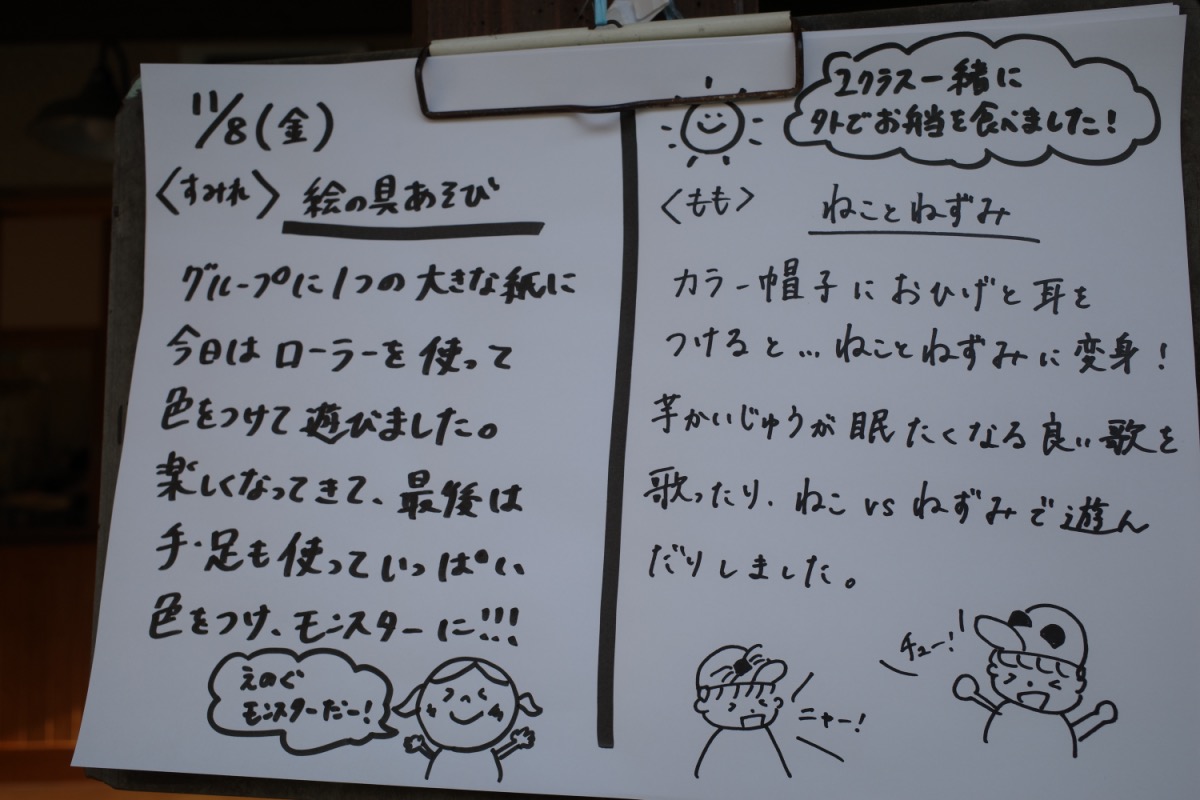 11/8(金)
〈すみれ〉 絵の具あそび
グループに1つの大きな紙に
今日はローラーを使って
色をつけて遊びました。
楽しくなってきて、最後は
手・足も使っていっぱい
色をつけ、モンスターに!!!
えのぐ
モンスターだー!
2クラス一緒に
外でお弁当を食べました!
〈もも〉 ねことねずみ
カラー帽子におひげと耳を
つけると…ねことねずみに変身!
芋かいじゅうが眠たくなる良い歌を
歌ったり、ねこvsねずみで遊ん
だりしました。
ニャー!
チュー!